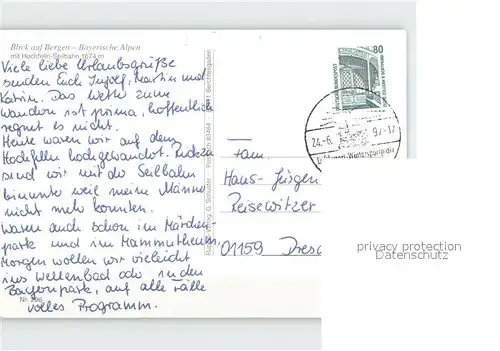 Blick auf Bergen – Bayerische Alpen
mit Hochfelln-Seilbahn 1674 m
Viele liebe Urlaubsgrüße
senden Euch Ingolf, Martin und
Katrin. Das Wetter zum
Wandern ist prima, hoffentlich
regnet es nicht.
Heute waren wir auf dem
Hochfelln hochgewandert.
sind wir mit der Seilbahn
hinunter weil meine Männer
nicht mehr konnten.
Waren auch schon im Märchen-
park und im Mammutheum.
Morgen wollen wir vielleicht
ins Wellenbad oder in den
Bayernpark, auf alle Fälle
volles Programm.
Nr. 296
80
24.-6. 97-17
Fam.
Hans-Jürgen
Reisewitzer
01159 Dresd
privacy protection
Datenschutz